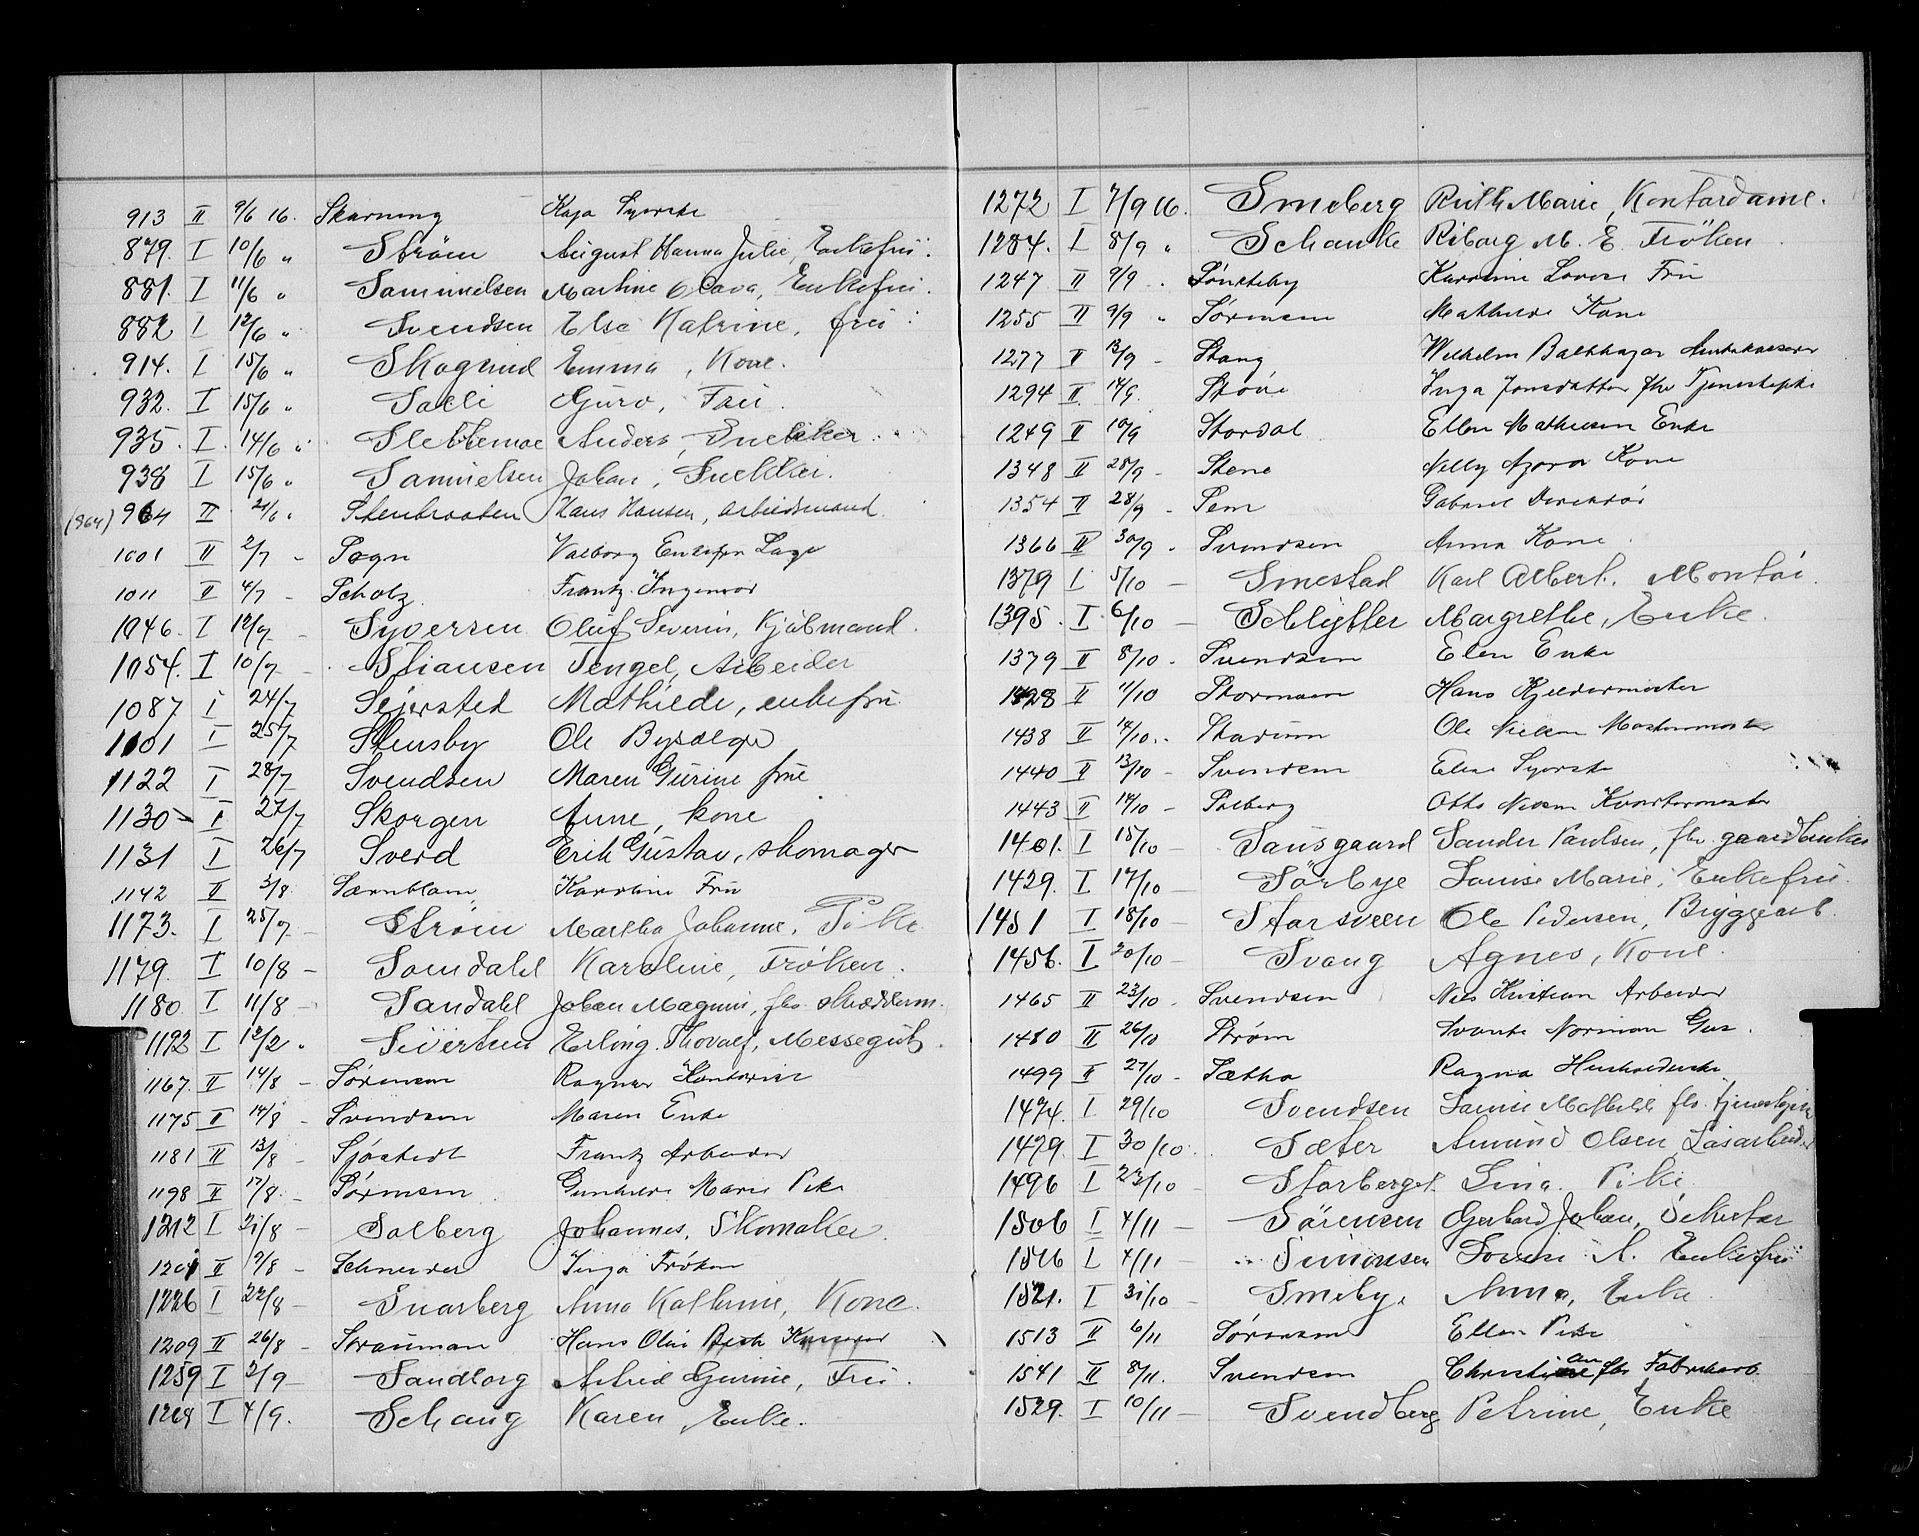 913 II 9/6 16. Skarning Kaja Syerske
879. I 10/6 " Strøm August Hanna Julie, Enkefru.
881. I 11/6 " Samuelsen Martine Olava, Enkefru.
882 I 12/6 " Svendsen Else Katrine, fru
914. I 15/6 " Skogrud Emma, Kone.
932. I 15/6 " Salli Guro, Fru.
935. I. 14/6 " Slettemoe Anders, Snekker.
938 I 15/6 " Samuelsen Johan, Snekker.
(964) 964 II 21/6 " Stenbraaten Hans Hansen, Arbeidsmand.
1001 II 2/7 - Sogn Valborg Enkefru
1011 II 4/7 - Scholz Frantz Ingeniør
1046. I 12/7 - Syversen Oluf Severin, Kjøbmand.
1054. I 10/7 - Stiansen Tengel, Arbeider
1087 I 24/7 Sejersted Mathilde, enkefru
1101 I 25/7 Stensby Ole Bysælger
1122 I 28/7 Svendsen Maren Gurine frue
1130 I 27/7 Skorgen Anne, kone
1131 I 26/7 Sverd Erik Gustav, skomager
1142 II 3/8. Sørnblom Karoline Fru
1173. I 25/7 - Strøm Martha Johanne, Pike
1179. I 10/8 - Somdahl Karoline, Frøken.
1180. I 11/8 - Sandahl Johan Magnus, fhv. skræderm.
1192 I 12/2 " Sivertsen Erling Thovalf, Messegut.
1167. II 14/8 - Sørensen Ragnar Kontorist
1175 II 14/8 - Svendsen Maren Enke
1181 II 13/8 - Sjøstedt Frantz Arbeider
1198 II 17/8. - Sørensen Gunhilde Marie Pike
1212 I 21/8 - Solberg Johannes, Skomaker.
1201 II 9/8 - Schneider Inga Frøken
1226 I 22/8 - Snarberg Anna Kathrine, Kone.
1209 II 26/8 - Strauman Hans Olai
1259 I 2/9 - Sandborg Astrid Gurine, Fru.
1268 I 4/9. Schang Karen, Enke.
1272 I 7/9 16. Smeberg Ruth Marie, Kontordame.
1284. I 8/9 " Schanke Riborg M. E. Frøken
1247 II 9/9 " Sønsteby Karoline Lovise Fru
1255 II 9/9 " Sørensen Mathilde Kone
1277 II 13/9 - Stang Wilhelm Balthazar
1294 II 14/9. Støve Inga Jonsdatter fhv Tjenestepike
1249 II 10/9 Stordal Ellen Mathiesen Enke
1348 II 25/9 - Stene Nelly Kone
1354 II 28/9 - Sem Gabriel Direktør
1366 II 30/9 " Svendsen Anna Kone.
1379 I 5/10 - Smestad Karl Albert, Montør.
1395. I. 6/10 - Schlytter Margrethe, Enke.
1379 II 8/10 - Svendsen Elen Enke
1428 II 11/10 Stormoen Hans Kjeldermester
1438 II 14/10.. Starum Ole Nielsen Maskinmester
1440 II 13/10 - Svendsen Elise Syerske
1443 II 14/10 - Solberg Otto Nilsen Kvartermester
1401. I 15/10 - Sausgaard Sander Paulsen, fhv. gaardbruker
1429. I 17/10 - Sørbye Louise Marie, Enkefru.
1451 I 18/10 - Storsveen Ole Pedersen, Bryggearb.
1456. I 20/10 - Svang Agnes, Kone.
1465 II 23/10 . Svendsen Nils Kristian Arbeider
1480 II 26/10 Strøm Svante Norman Gut.
1499 II 27/10 - Sætha Ragna Husholderske
1474. I 29/10 Svendsen Laura Mathilde fhv. tjenestepike
1479. I 30/10. Sæter Amund Olsen, Løsarbeider
1496 I 23/10 - Storberget Lina. Pike.
1506 I 4/11 - Sørensen Gerhard Johan, Sekretær
1516 I 4/11 - Simonsen Lovise A. Enkefru
1521. I 31/10 - Smebye Anna, Enke
1513 II 6/11 Sørensen Ellen Pike
1541 II 8/11. Svendsen Christian fhv Fabrikarb.
1529. I 10/11 - Svendberg Petrine, Enke